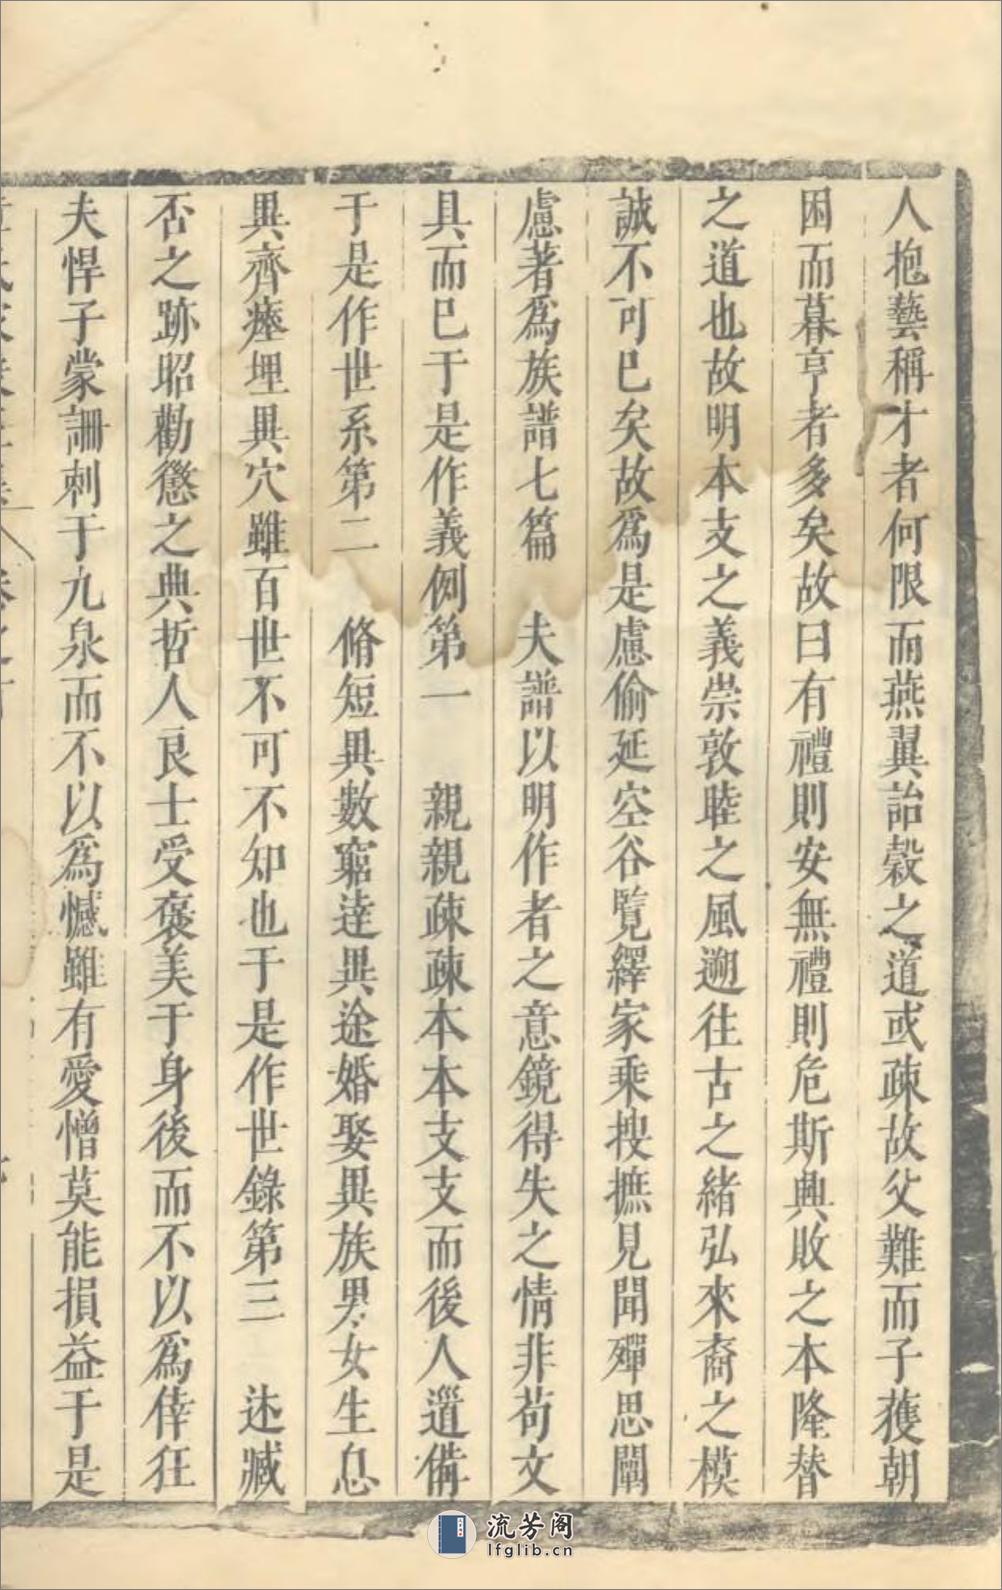 人抱藝稱才者何限而燕翼詒穀之道或疎故父難而子獲朝
困而暮亨者多矣故曰有禮則安無禮則危斯興敗之本隆替
之道也故明本支之義崇敦睦之風遡往古之緒弘來裔之模
誠不可已矣故爲是慮偷延空谷覽繹家乘搜摭見聞殫思闡
慮著爲族譜七篇　夫譜以明作者之意鏡得失之情非苟文
具而已于是作義例第一　親親疎疎本本支支而後人道備
于是作世系第二　脩短異數窮逹異途婚娶異族男女生息
異齊瘞埋異穴雖百世不可不知也于是作世錄第三　迷臧
否之跡昭勸懲之典哲人良士受褒美于身後而不以爲倖狂
夫悍子蒙訕刺于九泉而不以爲憾雖有愛憎莫能損益于是
流芳阁
lfglib.cn